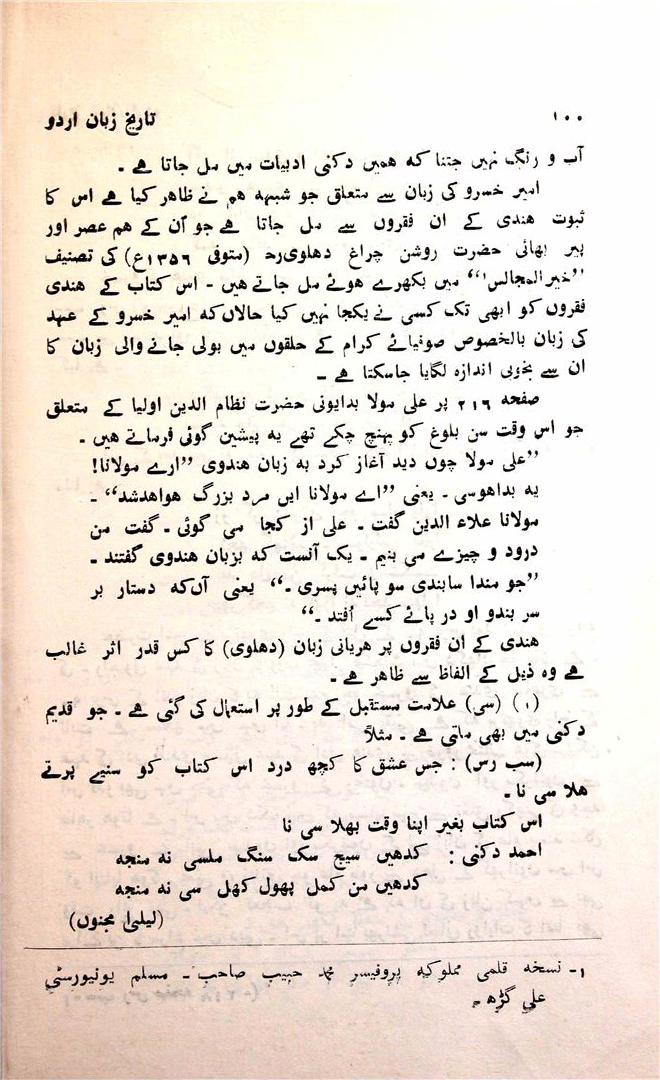 ۱۰۰ تاریخ زبان اردو
آب و رنگ نہیں جتنا کہ ہمیں دکنی ادبیات میں مل جاتا ہے ۔
امیر خسرو کی زبان سے متعلق جو شبہہ ہم نے ظاہر کیا ہے اس کا
ثبوت ہندی کے ان فقروں سے مل جاتا ہے جو اُن کے ہم عصر اور
پیر بھائی حضرت روشن چراغ دہلوی رح (متوفی ۱۳۵۶ع) کی تصنیف
”خیر المجالس۱“ میں بکھرے ہوئے مل جاتے ہیں ۔ اس کتاب کے ہندی
فقروں کو ابھی تک کسی نے یکجا نہیں کیا حالاں کہ امیر خسرو کے عہد
کی زبان بالخصوص صوفیائے کرام کے حلقوں میں بولی جانے والی زبان کا
ان سے بخوبی اندازہ لگایا جاسکتا ہے ۔
صفحہ ۲۱۶ پر علی مولا بدایونی حضرت نظام الدین اولیا کے متعلق
جو اس وقت سن بلوغ کو پہنچ چکے تھے یہ پیشین گوئی فرماتے ہیں ۔
”علی مولا چوں دید آغاز کرد بہ زبان ہندوی ”ارے مولانا!
یہ بداہوسی ۔ یعنی ”اے مولانا ایں مرد بزرگ ہواہدشد“ ۔
مولانا علاء الدین گفت ۔ علی از کجا می گوئی ۔ گفت من
درود و چیزے می بنیم ۔ یک آنست کہ بزبان ہندوی گفتند ۔
”جو مندا سابندی سو پائیں پسری ۔“ یعنی آں کہ دستار بر
سر بندو او در پائے کسے اُفتد ۔“
ہندی کے ان فقروں پر ہریانی زبان (دہلوی) کا کس قدر اثر غالب
ہے وہ ذیل کے الفاظ سے ظاہر ہے ۔
(۱) (سی) علامت مستقبل کے طور پر استعمال کی گئی ہے ۔ جو قدیم
دکنی میں بھی ملتی ہے ۔ مثلاً
(سب رس) : جس عشق کا کچھ درد اس کتاب کو سنیے پرتے
ھلا سی نا ۔
اس کتاب بغیر اپنا وقت بھلا سی نا
احمد دکنی : کدھیں سیج سک سنگ ملسی نہ منجہ
کدھیں من کمل پھول کھل سی نہ منجہ
(لیلیٰ مجنوں)
۱۔ نسخہ قلمی مملوکہ پروفیسر محمد حبیب صاحب ۔ مسلم یونیورسٹی
علی گڑھ ۔